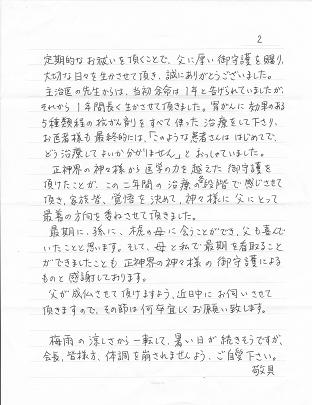 2
定期的なお祓いを頂くことで、父に厚い御守護を賜り、
大切な日々を生かさせて頂き、誠にありがとうございました。
主治医の先生からは、当初余命は1年と告げられていましたが、
それから1年間長く生かさせて頂きました。胃がんに効果のある
5種類程の抗がん剤をすべて使った治療をして下さり、
お医者様も最終的には、「このような患者さんははじめてで、
どう治療してよいか分かりません」とおっしゃていました。
正神界の神々様から医学の力を越えた御守護を
頂けたことが、この二年間の治療の段階で感じさせて
頂き、家族皆、覚悟を決めて、神々様に父にとって
最善の方向を委ねさせて頂きました。
最期に、孫に、枕の母に会うことができ、父も喜んで
いたことと思います。そして、母と私で最期を看取ること
ができましたことも正神界の神々様の御守護による
ものと感謝しております。
父が成仏させて頂けますよう、近日中にお伺いさせて
頂きますので、その節は何卒宜しくお願い致します。
梅雨の涼しさから一転して、暑い日が続きそうですが、
会長、皆様方、体調を崩されませんよう、ご自愛下さい。
敬具